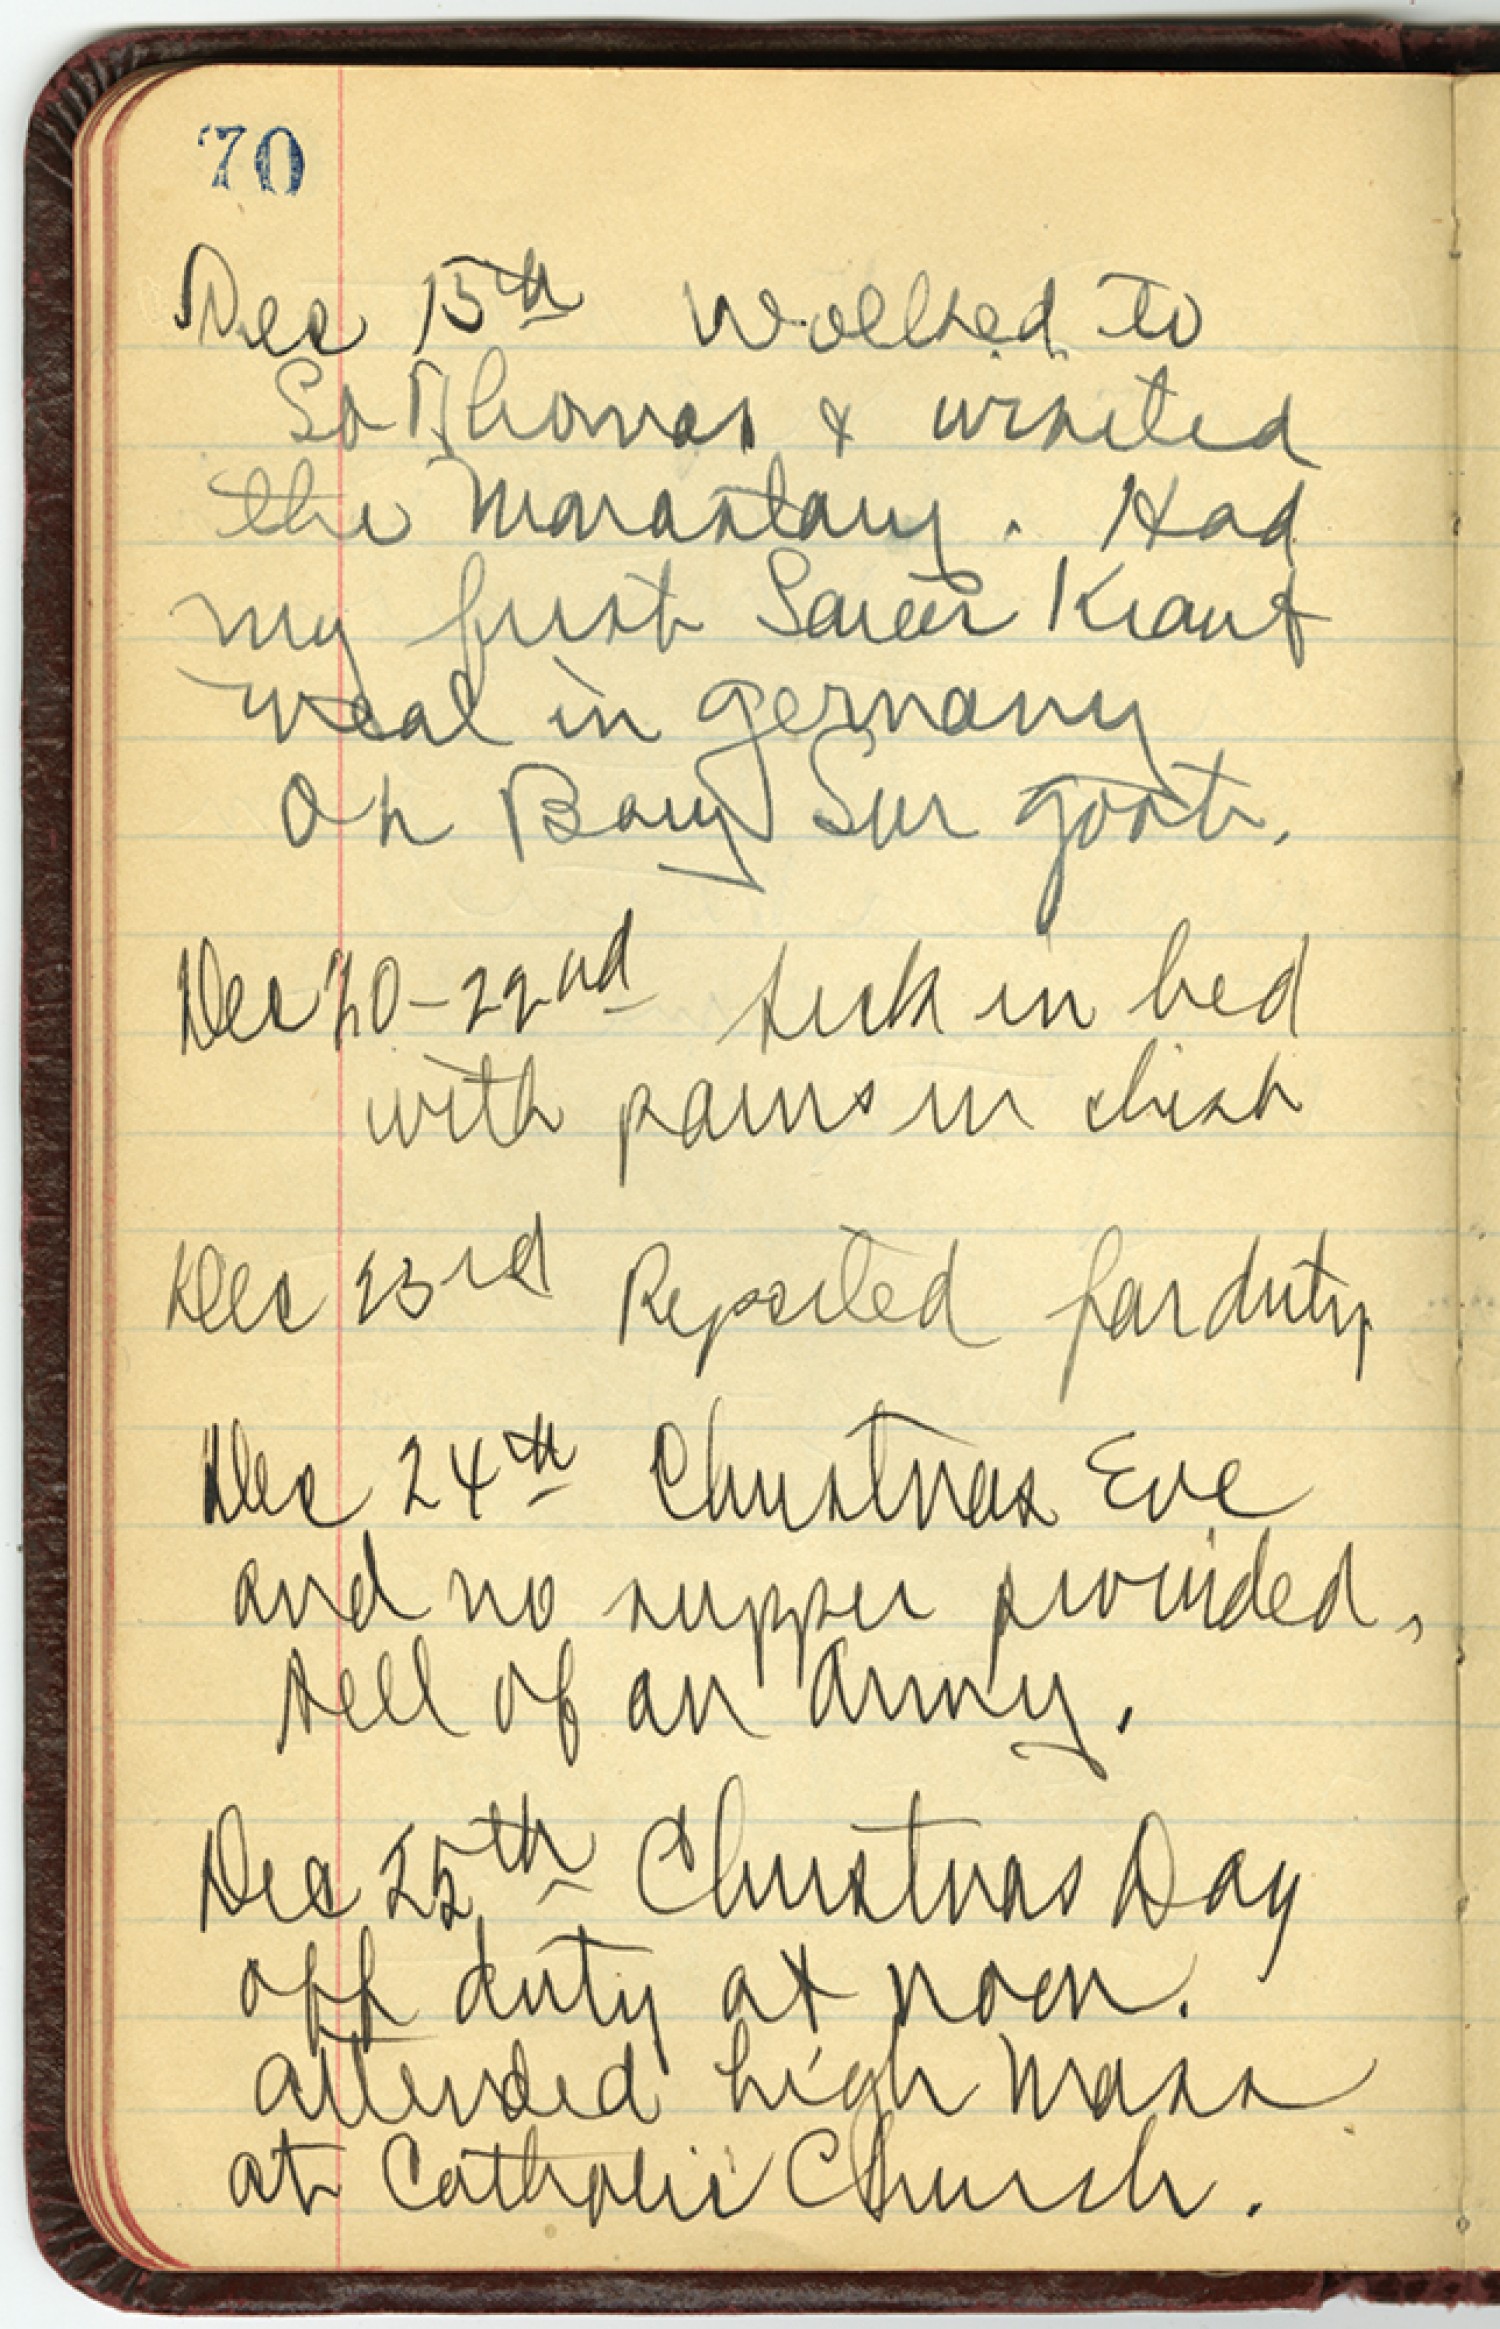 70
Dec 15th Walked to
St Thomas & visited
the Monastary. Had
my first Sauer Kraut
meal in Germany
Oh Boy Sur goot.
Dec 20-22nd sick in bed
with pains in chest
Dec 23rd Reported for duty
Dec 24th Christmas Eve
and no supper provided,
of an Army.
Dec 25th Christmas Day
off duty at noon.
attended high Mass
at Catholic Church.